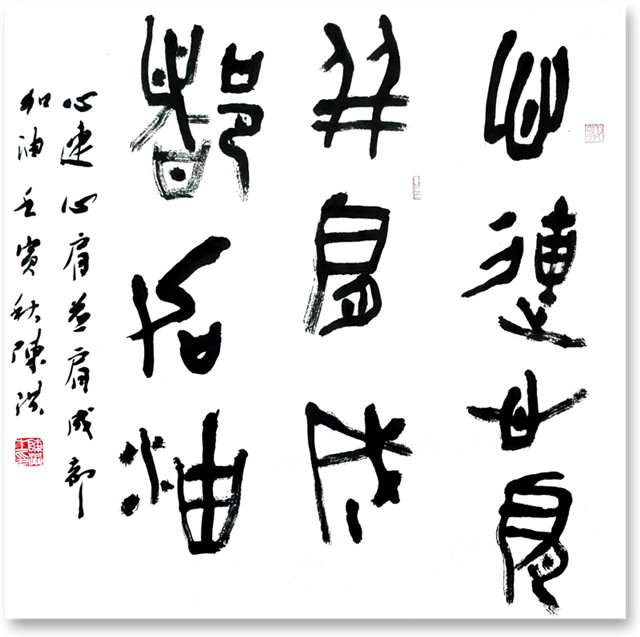 心連心肩
並肩成
都加油
心连心肩並肩成都
加油壬寅秋陳洪